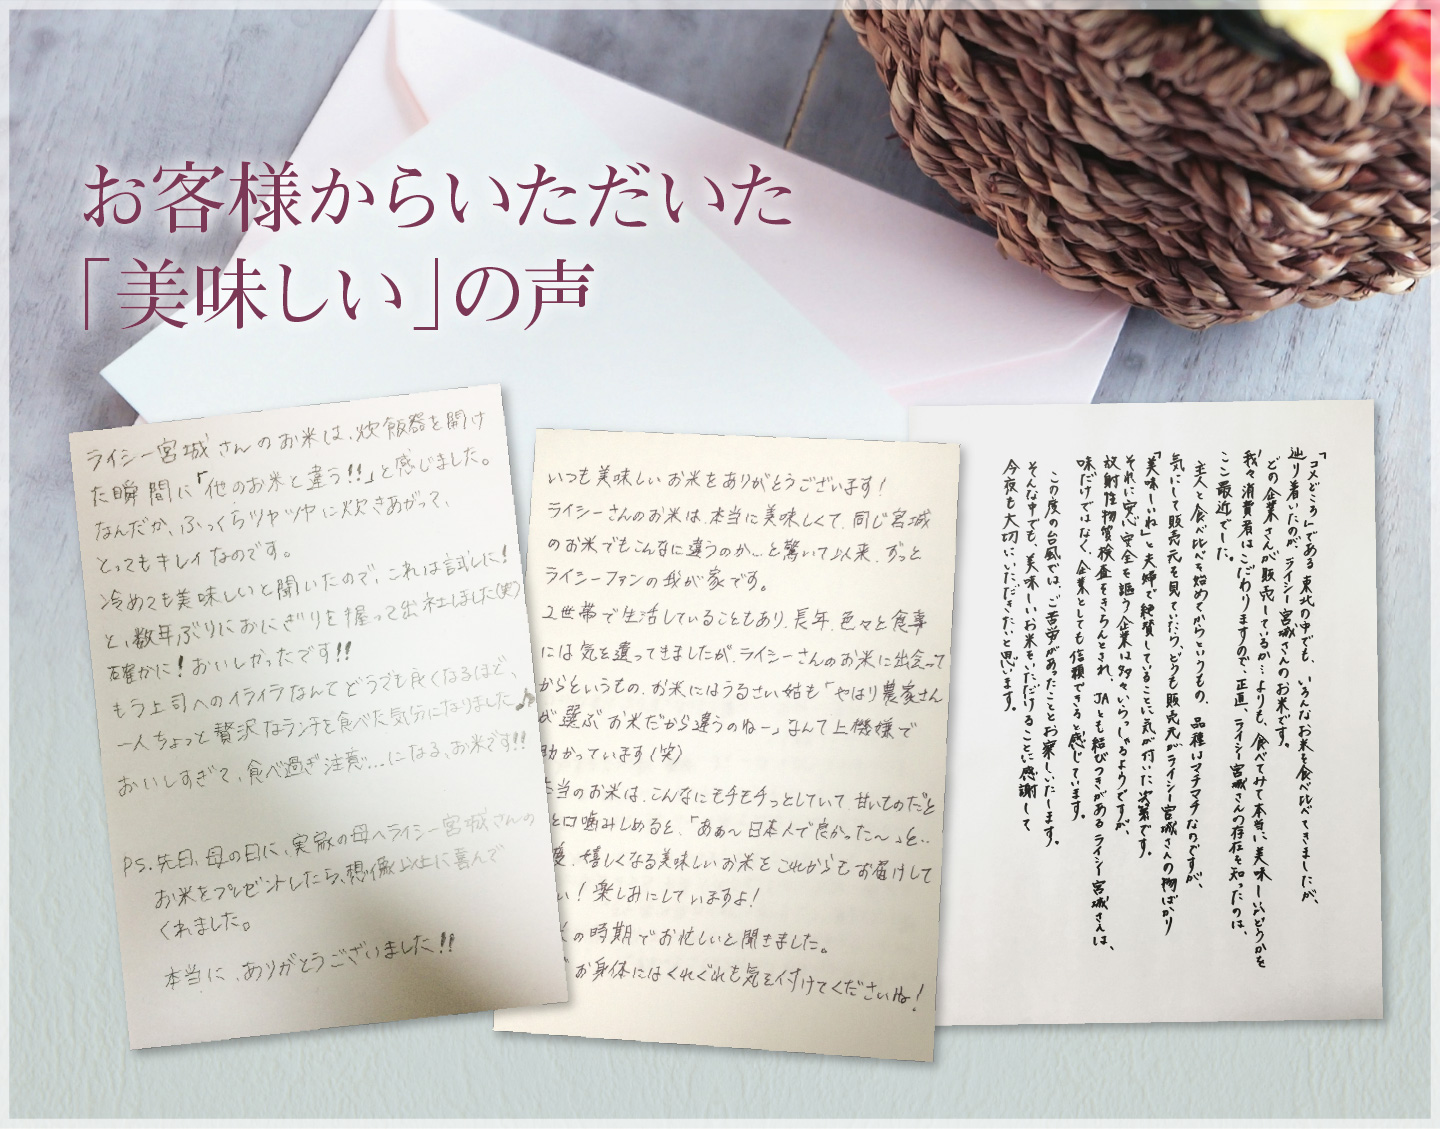 お客様からいただいた
「美味しい」の声
ライシー宮城さんのお米は、炊飯器を開け
た瞬間に「他のお米と違う!!」と感じました。
なんだか、ふっくらツヤツヤに炊きあがって、
とってもキレイなのです。
冷めても美味しいと聞いたので、これは試しに!
と、数年ぶりにおにぎりを握って出社しました(笑)
確かに!おいしかったです!!
もう上司へのイライラなんてどうでも良くなるほど、
一人ちょっと贅沢なランチを食べた気分になりました♪
おいしすぎて、食べ過ぎ注意...になる、お米です!!
PS.先日、母の日に、実家の母へライシー宮城さんの
お米をプレゼントしたら、想像以上に喜んで
くれました。
本当に、ありがとうございました!!
いつも美味しいお米をありがとうございます!
ライシーさんのお米は、本当に美味しくて、同じ宮城
のお米でもこんなに違うのか...と驚いて以来、ずっと
ライシーファンの我が家です。
2世帯で生活していることもあり、長年、色々と食事
には気を遣ってきましたが、ライシーさんのお米に出会って
からというもの、お米にはうるさい姑も「やはり農家さん
が選ぶお米だから違うのねー」なんて上機嫌で
助かっています(笑)
当のお米は、こんなにモチモチっとしていて、甘いものだと
と口噛みしめると、「あぁ〜日本人で良かった〜」と..
嬉しくなる美味しいお米をこれからもお届けして
い!楽しみにしていますよ!
の時期でお忙しいと聞きました。
お身体にはくれぐれも気を付けてくださいね!
「コメどころ」である東北の中でも、いろんなお米を食べ比べてきましたが、
辿り着いたのが、ライシー宮城さんのお米です。
どの企業さんが販売しているか…よりも、食べてみて本当に美味しいかどうかを
我々消費者はこだわりますので、正直、ライシー宮城さんの存在を知ったのは、
ここ最近でした。
主人と食べ比べを始めてからというもの、品種はマチマチなのですが、
気にして販売元を見ていたら、どうも販売元がライシー宮城さんの物ばかり
「美味しいね」と夫婦で絶賛していることに気が付いた次第です。
それに安心安全を謳う企業は多々いらっしゃるようですが、
放射性物質検査をきちんとされ、JAとも結びつきがあるライシー宮城さんは、
味だけではなく、企業としても信頼できると感じています。
この度の台風では、ご苦労があったこととお察しいたします。
そんな中でも、美味しいお米をいただけることに感謝して
今夜も大切にいただきたいと思います。